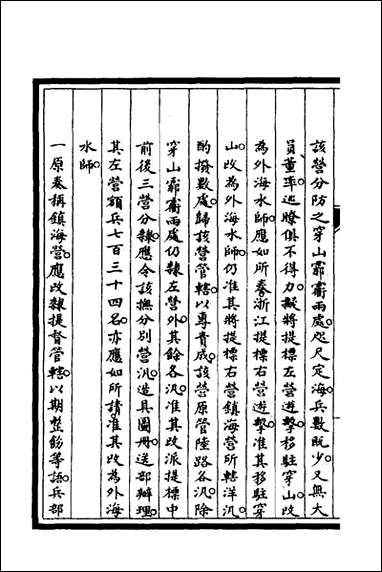 該營分防之穿山霩𩇕兩處。咫尺定海。兵數既少。又無大
員董率。巡瞭俱不得力。擬將提標左營遊擊。移駐穿山。改
為外海水師。應如所奏。浙江提標右營遊擊。准其移駐穿
山。改為外海水師。仍准其將提標右營鎮海營所轄洋汛。
酌撥數處。歸該營管轄。以專責成。該營原管陸路各汛。除
穿山霩𩇕兩處。仍隸左營外。其餘各汛。准其改派提標中
前後三營分隸。應令該撫分別營汛。造具圖冊。送部辦理。
其左營額兵七百三十四名。亦應如所請。准其改為外海
水師。
一原奏稱鎮海營。應改隸提督管轄。以期整飭等語。兵部